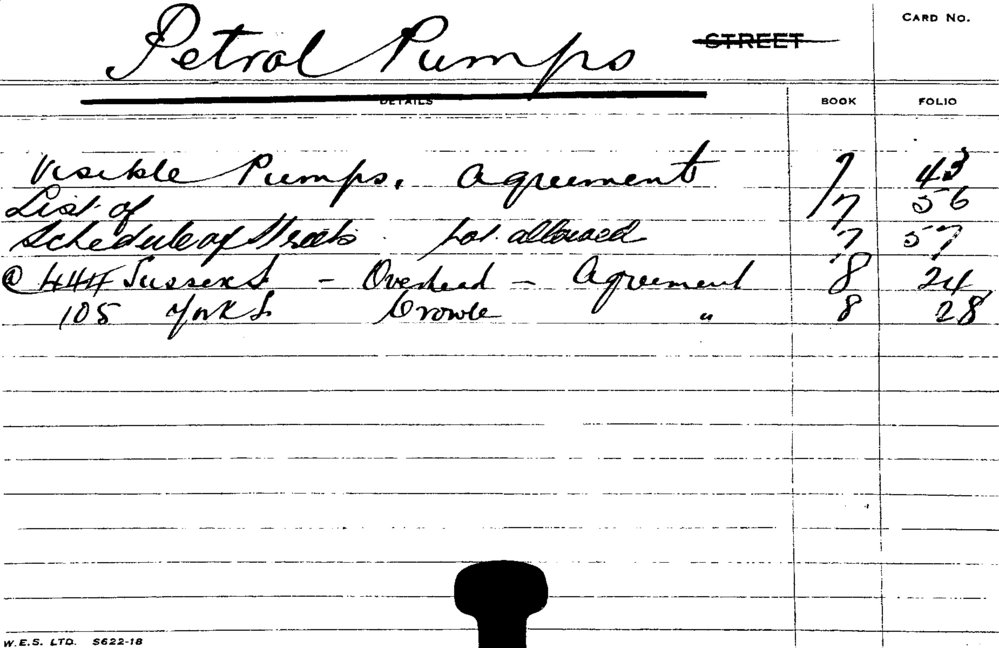 Petrol Pumps STREET CARD No.
DETAILS BOOK FOLIO
Visible Pumps. Agreement 7 43
List of 7 56
Schedule of Streets not allowed 7 57
@ 444 Sussex St - Overhead - Agreement 8 24
105 York St Crowle " 8 28
W.E.S. LTD. S622-18